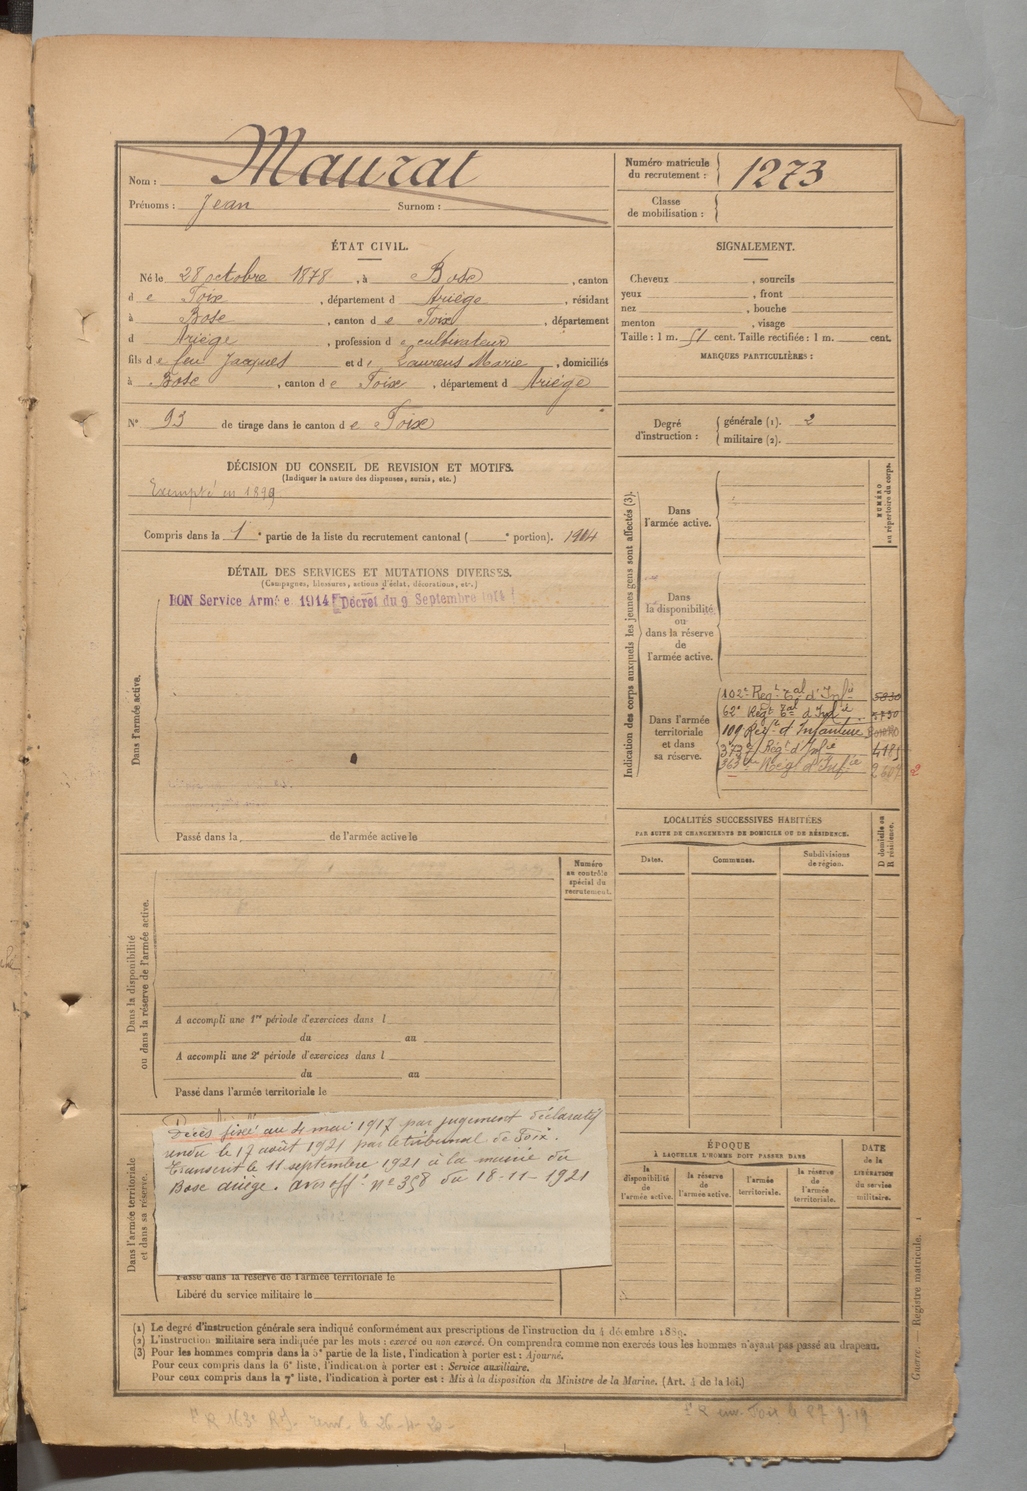 Nom : Maurat
Prénoms : Jean Surnom :
Numéro matricule du recrutement : 1273
Classe de mobilisation :
ÉTAT CIVIL.
Né le 28 octobre 1878, à Bosc, canton
de Foix, département d Ariège, résidant
à Bosc, canton de Foix, département
d Ariège, profession de cultivateur
fils de feu Jacques et de Laurens Marie, domiciliés
à Bosc, canton de Foix, département d Ariège
N° 93 de tirage dans le canton de Foix
SIGNALEMENT.
Cheveux , sourcils
yeux , front
nez , bouche
menton , visage
Taille : 1 m. 51 cent. Taille rectifiée : 1 m. cent.
MARQUES PARTICULIÈRES :
Degré d'instruction : générale (1). 2
militaire (2).
DÉCISION DU CONSEIL DE REVISION ET MOTIFS.
(Indiquer la nature des dispenses, sursis, etc.)
Exempté en 1899
Compris dans la 1e partie de la liste du recrutement cantonal ( e portion). 1914
DÉTAIL DES SERVICES ET MUTATIONS DIVERSES.
(Campagnes, blessures, actions d'éclat, décorations, etc.)
BON Service Armé e 1914 Décret du 9 Septembre 1914
Dans l'armée active.
Passé dans la de l'armée active le
Indication des corps auxquels les jeunes gens sont affectés (3).
NUMÉRO au répertoire du corps.
Dans l'armée active.
Dans la disponibilité ou dans la réserve de l'armée active.
Dans l'armée territoriale et dans sa réserve.
102e Régt Tal d'Infie
62e Régt Tal d'Infie
109 Régt d'Infanterie
373 Régt d'Infie 4185
363 Régt d'Infie
LOCALITÉS SUCCESSIVES HABITÉES
PAR SUITE DE CHANGEMENTS DE DOMICILE OU DE RÉSIDENCE.
Dates. Communes. Subdivisions de région. D domicile ou R résidence.
Numéro au contrôle spécial du recrutement.
Dans la disponibilité ou dans la réserve de l'armée active.
A accompli une 1re période d'exercices dans l
du au
A accompli une 2e période d'exercices dans l
du au
Passé dans l'armée territoriale le
Dans l'armée territoriale et dans sa réserve.
Décès fixé au 4 mai 1917 par jugement déclaratif
rendu le 17 août 1921 par le tribunal de Foix.
Transcrit le 11 septembre 1921 à la mairie du
Bosc ariège. avis offel n° 358 du 18-11-1921
Passé dans la réserve de l'armée territoriale le
Libéré du service militaire le
ÉPOQUE
À LAQUELLE L'HOMME DOIT PASSER DANS
la disponibilité de l'armée active.
la réserve de l'armée active.
l'armée territoriale.
la réserve de l'armée territoriale.
DATE de la LIBÉRATION du service militaire.
(1) Le degré d'instruction générale sera indiqué conformément aux prescriptions de l'instruction du 4 décembre 1889.
(2) L'instruction militaire sera indiquée par les mots : exercé ou non exercé. On comprendra comme non exercés tous les hommes n'ayant pas passé au drapeau.
(3) Pour les hommes compris dans la 5e partie de la liste, l'indication à porter est : Ajourné.
Pour ceux compris dans la 6e liste, l'indication à porter est : Service auxiliaire.
Pour ceux compris dans la 7e liste, l'indication à porter est : Mis à la disposition du Ministre de la Marine. (Art. 4 de la loi.)
Guerre. — Registre matricule. 1